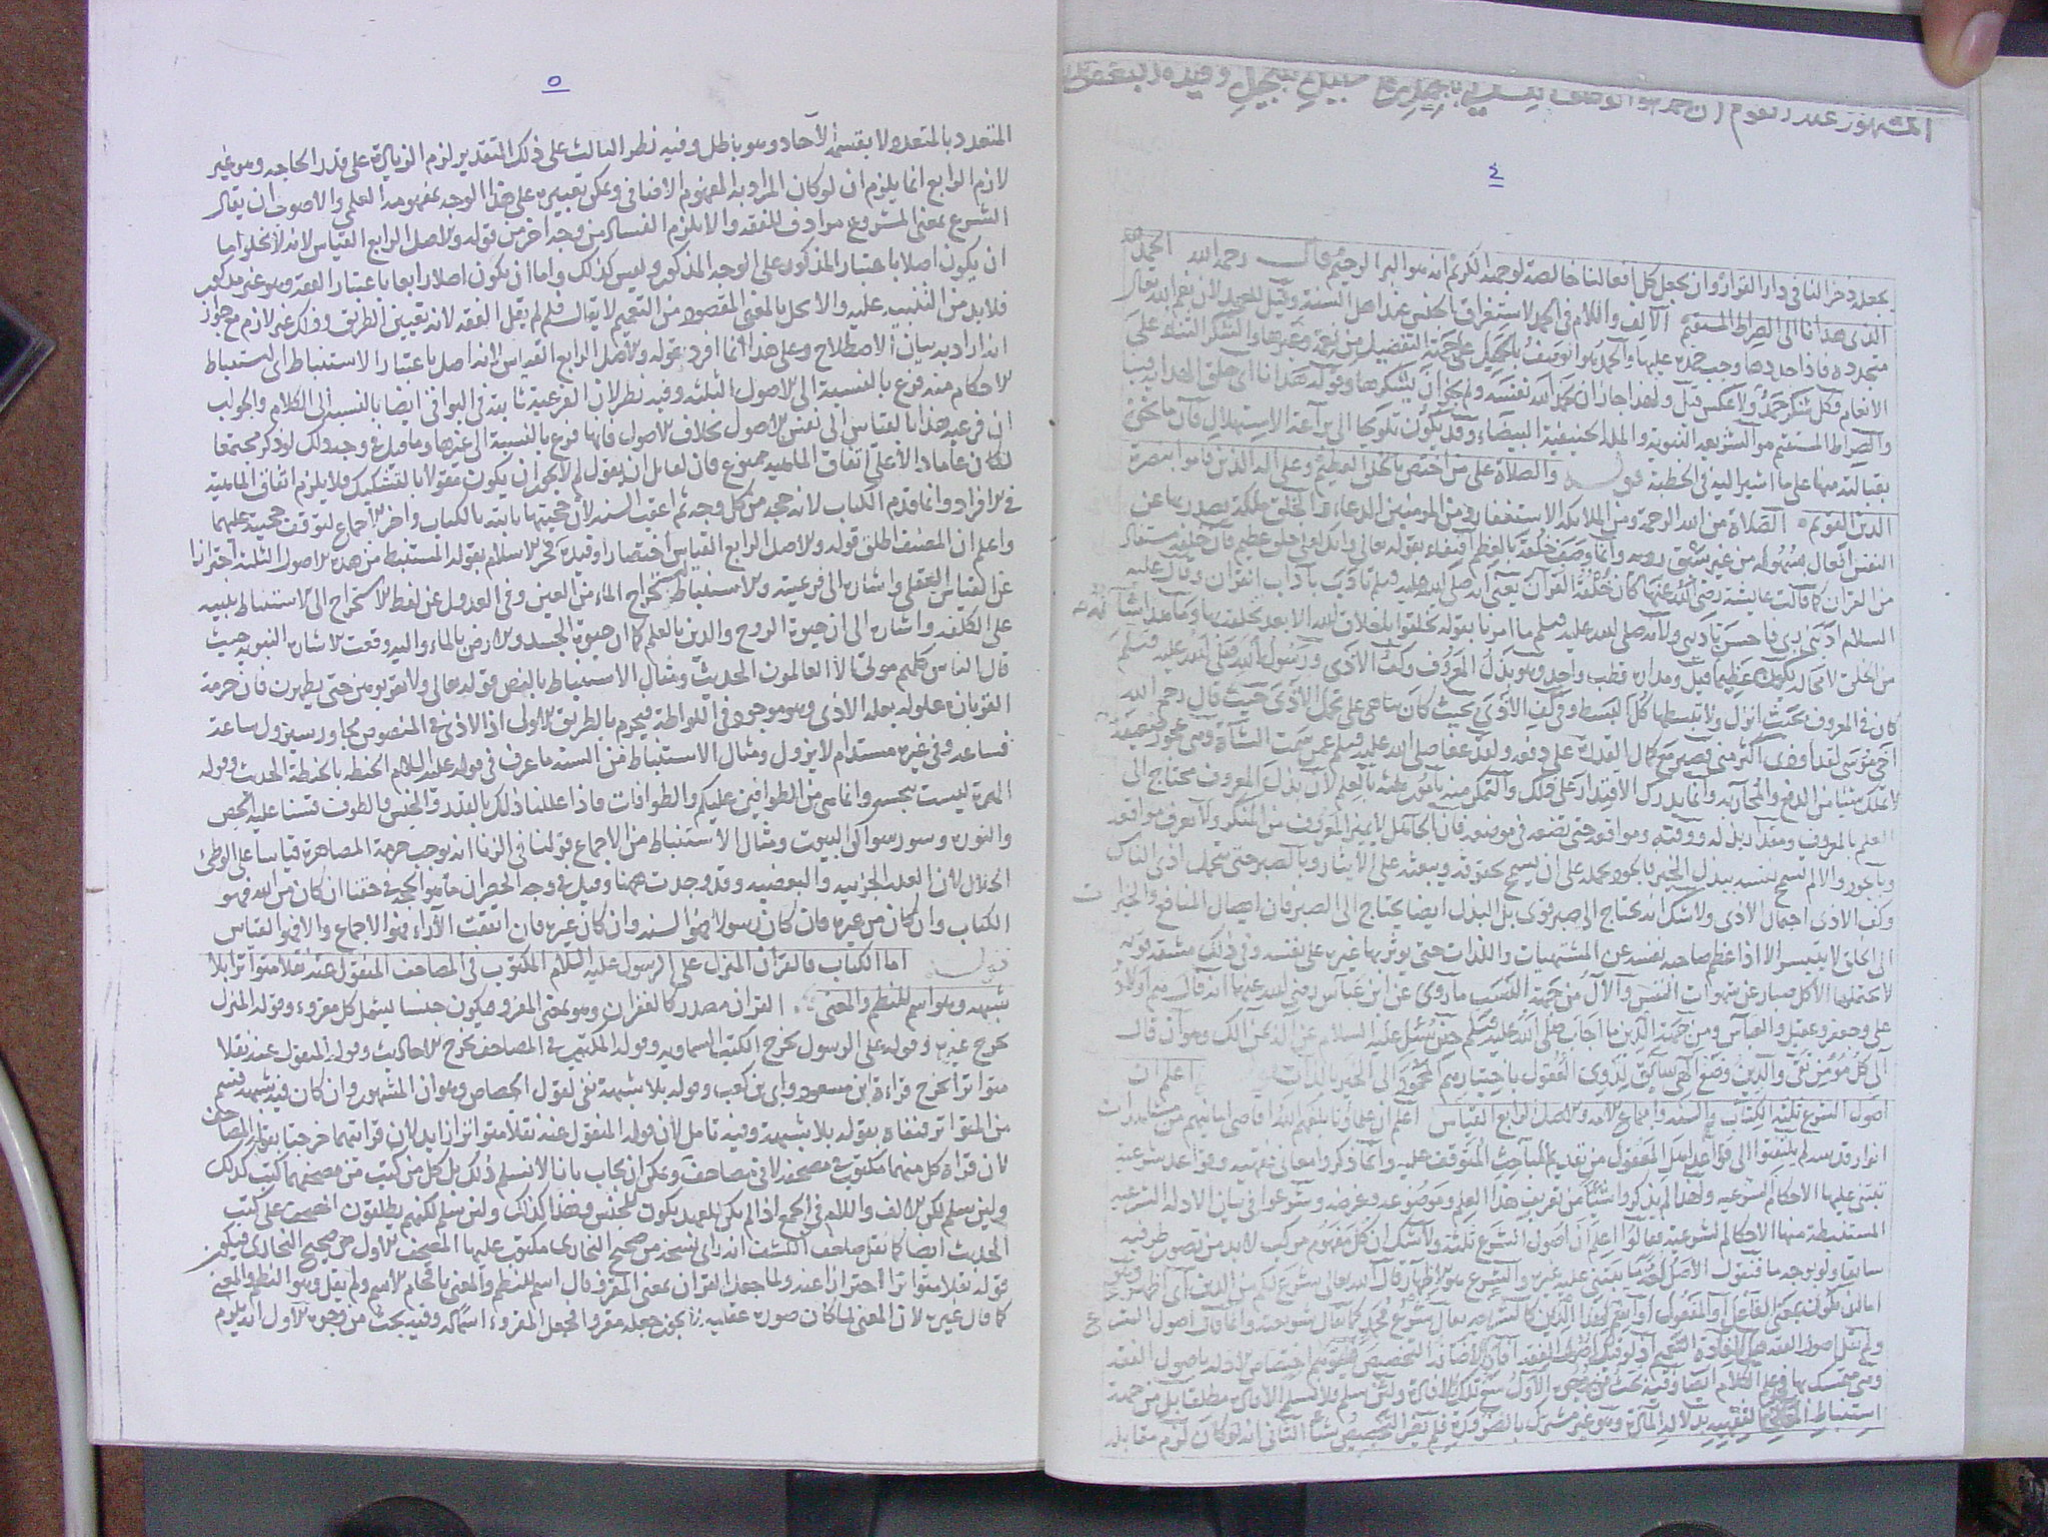 المشهور عند القوم ان الحمد هو الوصف بالجميل على سبيل التبجيل وقيده البعض
٤
يجعله ذخرا لنا في دار القرار وان يجعل كل افعالنا خالصة لوجهه الكريم انه هو البر الرحيم قال رحمه الله الحمد لله
الذي هدانا الى الصراط المستقيم الالف واللام في الحمد لاستغراق الجنس عند اهل السنة وقيل للعهد لان نعم الله تعالى
متجددة فاذا حددها وجب حمده عليها والحمد هو التوصيف بالجميل على جهة التفضيل من نعمة وغيرها والشكر الثناء على
الانعام فكل شكر حمد ولا عكس قيل ولهذا جاز ان يحمد الله نفسه ولم يجز ان يشكرها وقوله هدانا اي خلق الهداية فينا
والصراط المستقيم هو الشريعة النبوية والملة الحنيفية البيضاء وقد يكون تلويحا الى براعة الاستهلال فان ما نحن
بقبالته منها على ما اشير اليه في الخطبة قوله والصلاة على من اختص بالخلق العظيم وعلى اله الذين قاموا بنصرة
الدين القويم الصلاة من الله الرحمة ومن الملائكة الاستغفار ومن المؤمنين الدعاء والخلق ملكة يصدر بها عن
النفس افعال بسهولة من غير سبق روية وانما وصف خلقه بالعظم اقتفاء بقوله تعالى وانك لعلى خلق عظيم فان خلقه مستفاد
من القران كما قالت عايشة رضي الله عنها كان خلقه القران يعني انه صلى الله عليه وسلم تادب باداب القران وقال عليه
السلام ادبني ربي فاحسن تاديبي ولانه صلى الله عليه وسلم ما امرنا بقوله تخلقوا باخلاق الله الا بعد تخلقه بها وما هذا شانه
من الخلق لا محالة يكون عظيما قيل ومداره قطب واحد وهو بذل المعروف وكف الاذى ورسول الله صلى الله عليه وسلم
كان في المعروف بحيث انزل ولا تبسطها كل البسط وفي كف الاذى بحيث كان يناجى على تحمل الاذى حيث قال رحم الله
اخي موسى لقد اوذي اكثر من هذا فصبر مع كمال القدرة على دفعه ولقد عفا صلى الله عليه وسلم عمن سمت الشاة وهي عجوز ضعيفة
لا تملك شيئا من الدفع والمحاربة وانما يدرك الاقتدار على ذلك والتمكن منه بامور منه بالعلم لان بذل المعروف محتاج الى
العلم بالمعروف ومقدار بذله ووقته ومواقعه حتى يضعه في موضعه فان الجاهل لا يميز المعروف من المنكر ولا يعرف مواقعه
وبالجود والا لم تسمح نفسه ببذل الخير فالجود يحمله على ان يسمح بحقوقه ويبعثه على الايثار وبالصبر حتى يتحمل اذى الناس
وكف الاذى احتمال الاذى ولا شك انه يحتاج الى صبر قوي بل البذل ايضا يحتاج الى الصبر فان ايصال المنافع والخيرات
الى الخلق لا يتيسر الا اذا عظم صاحبه نفسه عن المشتهيات واللذات حتى يوثر بها غيره على نفسه وفي ذلك مشقة قوية
لا يحتملها الا كل صبار عن شهوات النفس والآل من جهة النسب ما روي عن ابن عباس رضي الله عنهما انه قال هم اولاد
علي وجعفر وعقيل والعباس ومن جهة الدين ما اجاب صلى الله عليه وسلم حين سئل عليه السلام عن الآل عن ذلك وهو ان قال
آلي كل مؤمن تقي والدين وضع الهي سائق لذوي العقول باختيارهم المحمود الى الخير بالذات اعلم ان
اصول الشرع ثلثة الكتاب والسنة واجماع الامة والاصل الرابع القياس اعلم ان علماؤنا بلغهم الله اقاصي امانيهم من مشاهدات
انوار قدسه لم يلتفتوا الى قواعد اهل المعقول من تقديم المباحث المتوقف عليه وانما ذكروا معاني فقهية وقواعد شرعية
تبتني عليها الاحكام الشرعية ولهذا لم يذكروا شيئا من تعريف هذا العلم وموضوعه وغرضه وشرعوا في بيان الادلة الشرعية
المستنبطة منها الاحكام الشرعية فقالوا اعلم ان اصول الشرع ثلثة ولا شك ان كل مفهوم مركب لابد من تصور طرفيه
سابقا ولو بوجه ما فنقول الاصل لغة ما يبتنى عليه غيره والشرع هو الاظهار قال الله تعالى شرع لكم من الدين اي اظهر وهو
اما ان يكون بمعنى الفاعل او المفعول او اسم لهذا الدين كالشريعة يقال شرع محمد كما يقال شريعته وانما قال اصول الشرع
ولم يقل اصول الفقه لافادة التعميم اذ لو قيل اصول الفقه افادت الاضافة التخصيص فيتوهم اختصاص الادلة باصول الفقه
وهي متمسك بها في علم الكلام ايضا وفيه بحث من وجوه الاول منع تلك الافادة ولئن سلم فلا نسلم الافادة مطلقا بل من جهة
استنباط الفقهية بدلالة المادة وهو غير مشترك بالضرورة فلم يفد التخصيص شيئا الثاني انه لو كان لزم مقابلة
٥
المتعدد بالمتعدد ولا بقسمة الآحاد وهو باطل وفيه نظر الثالث على ذلك التقدير لزم الزيادة على قدر الحاجة وهو غير
لازم الرابع انما يلزم ان لو كان المراد به المفهوم الاضافي ويمكن تعبيره على هذا الوجه بمفهومه العلمي والاصوب ان يقال
الشرع بمعنى المشروع مرادف للفقه والا يلزم الفساد من وجه اخر من قوله والاصل الرابع القياس لانه لا يخلو اما
ان يكون اصلا باعتبار المذكور على الوجه المذكور وليس كذلك واما ان يكون اصلا رابعا باعتبار الفقه وهو غير مذكور
فلا بد من التنبيه عليه والا بخل بالمعنى المقصود من التعميم لا يقال فلم لم يقل الفقه لانه تعيين الطريق وذاك غير لازم مع جواز
انه اراد به بيان الاصطلاح وعلى هذا انما افرد بقوله والاصل الرابع القياس لانه اصل باعتبار الاستنباط اي استنباط
الاحكام منه فرع بالنسبة الى الاصول الثلثة وفيه نظر لان الفرعية ثابتة في البواقي ايضا بالنسبة الى الكلام والجواب
ان فرعية هذا بالقياس الى نفس الاصول بخلاف الاصول فانها فرع بالنسبة الى غيرها وما قيل في وجه ذلك لو ذكر مجتمعا
لكان عاما دالا على اتفاق الماهية ممنوع فان لقائل ان يقول لم لا يجوز ان يكون مقولا بالتشكيك فلا يلزم اتفاق الماهية
في الافراد وانما قدم الكتاب لانه حجة من كل وجه ثم اعقب السنة لان حجيتها ثابتة بالكتاب واخر الاجماع لتوقف حجيته عليهما
واعلم ان المصنف اطلق قوله والاصل الرابع القياس اختصارا وقيده فخر الاسلام بقوله المستنبط من هذه الاصول الثلثة احترازا
عن القياس العقلي واشارة الى فرعيته والاستنباط استخراج الماء من العين وفي العدول عن لفظ الاستخراج الى الاستنباط تنبيه
على الكلفة واشارة الى ان حيوة الروح والدين بالعلم كما ان حيوة الجسد والارض بالماء واليه وقعت الاشارة النبوية حيث
قال الناس كلهم موتى الا العالمون الحديث ومثال الاستنباط بالنص قوله تعالى ولا تقربوهن حتى يطهرن فان حرمة
القربان معلولة بعلة الاذى وهو موجود في اللواطة فيحرم بالطريق الاولى اذ الاذى في المنصوص مجاور سيزول ساعة
فساعة وفي غيره مستدام لا يزول ومثال الاستنباط من السنة ما عرف في قوله عليه السلام الحنطة بالحنطة الحديث وقوله
الهرة ليست بنجسة وانما هي من الطوافين عليكم والطوافات فاذا عللنا ذلك بالقدر والجنس والطوف قسنا عليه الجص
والنورة وسؤر سواكن البيوت ومثال الاستنباط من الاجماع قولنا في الزنا انه يوجب حرمة المصاهرة قياسا على الوطئ
الحلال لان العلة الجزئية والبعضية وقد وجدت ههنا وقيل في وجه الحصر ان ما هو الحجة في حقنا ان كان من الله فهو
الكتاب وان كان من غيره فان كان رسولا فهو السنة وان كان غيره فان اتفقت الآراء فهو الاجماع والا فهو القياس
قوله اما الكتاب فالقرآن المنزل على الرسول عليه السلام المكتوب في المصاحف المنقول عنه نقلا متواترا بلا
شبهة وهو اسم للنظم والمعنى القران مصدر كالغفران وهو بمعنى المقرو فيكون جنسا يشمل كل مقروء وقوله المنزل
يخرج غيره وقوله على الرسول يخرج الكتب السماوية وقوله المكتوب في المصاحف يخرج الاحاديث وقوله المنقول عنه نقلا
متواترا يخرج قراءة ابن مسعود وابي بن كعب وقوله بلا شبهة نفي لقول الجصاص وهو ان المشهور وان كان فيه شبهة قسم
من المتواتر فنفاه بقوله بلا شبهة وفيه تامل لان قوله المنقول عنه نقلا متواترا زايد لان قرائتهما خرجتا بقوله المصاحف
لان قراءة كل منهما مكتوب في مصحفه لا في مصاحف ويمكن ان يجاب بانا لا نسلم ذلك بل كل من كتب من مصحفهما كتب كذلك
ولئن سلم لكن الالف واللام في الجمع اذا لم يكن للعهد يكون للجنس وهذا كذلك ولئن سلم لكنهم يطلقون المصحف على كتب
الحديث ايضا كما نقل صاحب الكشف انه راى نسخة من صحيح البخارى مكتوب عليها المصحف الاول من صحيح البخارى فيكون
قوله نقلا متواترا احترازا عنه ولما جعل القران بمعنى المقرو قال اسم للنظم والمعنى باقحام الاسم ولم يقل وهو النظم والمعنى
كما قال غيره لان المعنى لما كان صورة عقلية لم يجز جعله مقروا فجعل المقروء اسما له وفيه بحث من وجوه الاول انه يلزم